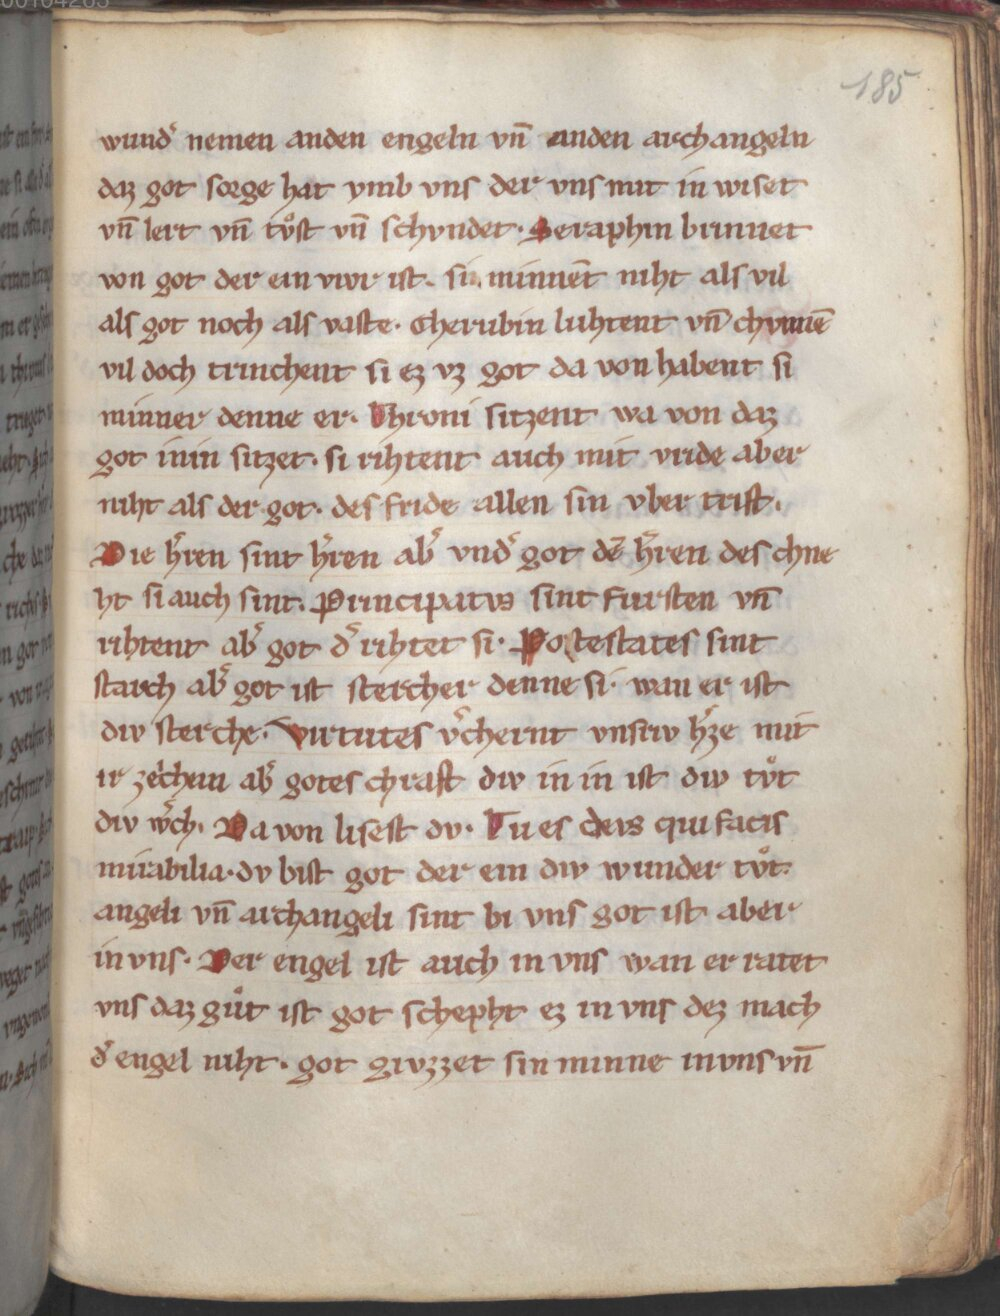 185
wund᷑ nemen anden engeln vn̄ anden archangeln
daz got sorge hat vmb vns der vns mit in wiset
vn̄ lert vn̄ tvͦst vn̄ schvndet. Seraphin brinnet
von got der ein viwr ist. si minnēt niht als vil
als got noch als vaste. Cherubin luhtent vn̄ chvnnē
vil doch trinchent si ez vz got da von habent si
minner denne er. Throni sitzent wa von daz
got inin sitzet. si rihtent auch mit vride aber
niht als der got. des fride allen sin vber trift.
Die h᷑ren sint h᷑ren ab᷑ vnd᷑ got dē h᷑ren des chne
ht si auch sint. Principatvs sint fursten vn̄
rihtent ab᷑ got d᷑ rihtet si. Potestates sint
starch ab᷑ got ist stercher denne si. wan er ist
div sterche. Virtutes v᷑chernt vnsriv h᷑ze mit
ir zeichan ab᷑ gotes chraft div in in ist div tvͦt
div w᷑ch. Da von lisest dv. Tu es devs qui facis
mirabilia. dv bist got der ein div wunder tvͦt.
angeli vn̄ archangeli sint bi vns got ist aber
in vns. Der engel ist auch in vns wan er ratet
vns daz guͦt ist got schepht ez in vns dez mach
d᷑ engel niht. got givzzet sin minne in vns vn̄